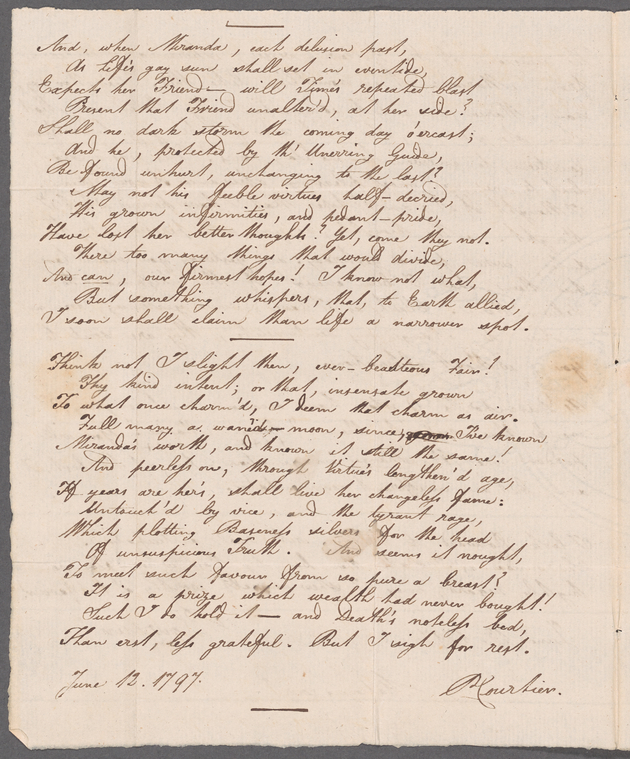 And, when Miranda, each delusion past,
As life's gay sun shall set in eventide,
Expects her Friend — will Time's repeated blast
Present that Friend unalter'd, at her side?
Shall no dark storm the coming day o'ercast;
And he, protected by th' Unerring Guide,
Be found unhurt, unchanging to the last?
May not his feeble virtues half-decried,
His grown infirmities, and pedant-pride,
Have lost her better thoughts? Yet, come they not.
There too many things that would divide,
And can, our firmest hopes! I know not what,
But something whispers, that, to Earth allied,
I soon shall claim than life a narrower spot.
Think not I slight then, ever-beauteous Fair!
Thy kind intent; or that, insensate grown
To what once charm'd, I deem that charm as air.
Full many a waned moon, since I've known
Miranda's worth, and known it still the same!
And peerless on, through Virtue's lengthen'd age,
If years are her's, shall live her changeless fame:
Untouch'd by vice, and the tyrant rage,
Which plotting Baseness silvers for the head
Of unsuspicious Truth. And seems it nought,
To meet such favour from so pure a breast?
It is a prize which wealth had never bought!
Such I do hold it — and Death's noteless bed,
Than erst, less grateful. But I sigh for rest.
June 12. 1797. P. Courtier.